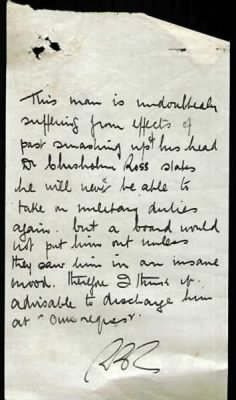 This man is undoubtedly
suffering from effects of
past smashing up of his head
Dr Chisholm Ross states
he will never be able to
take on military duties
again. but a board would
not put him out unless
they saw him in an insane
mood. Therefore I think it
advisable to discharge him
at "Own request".